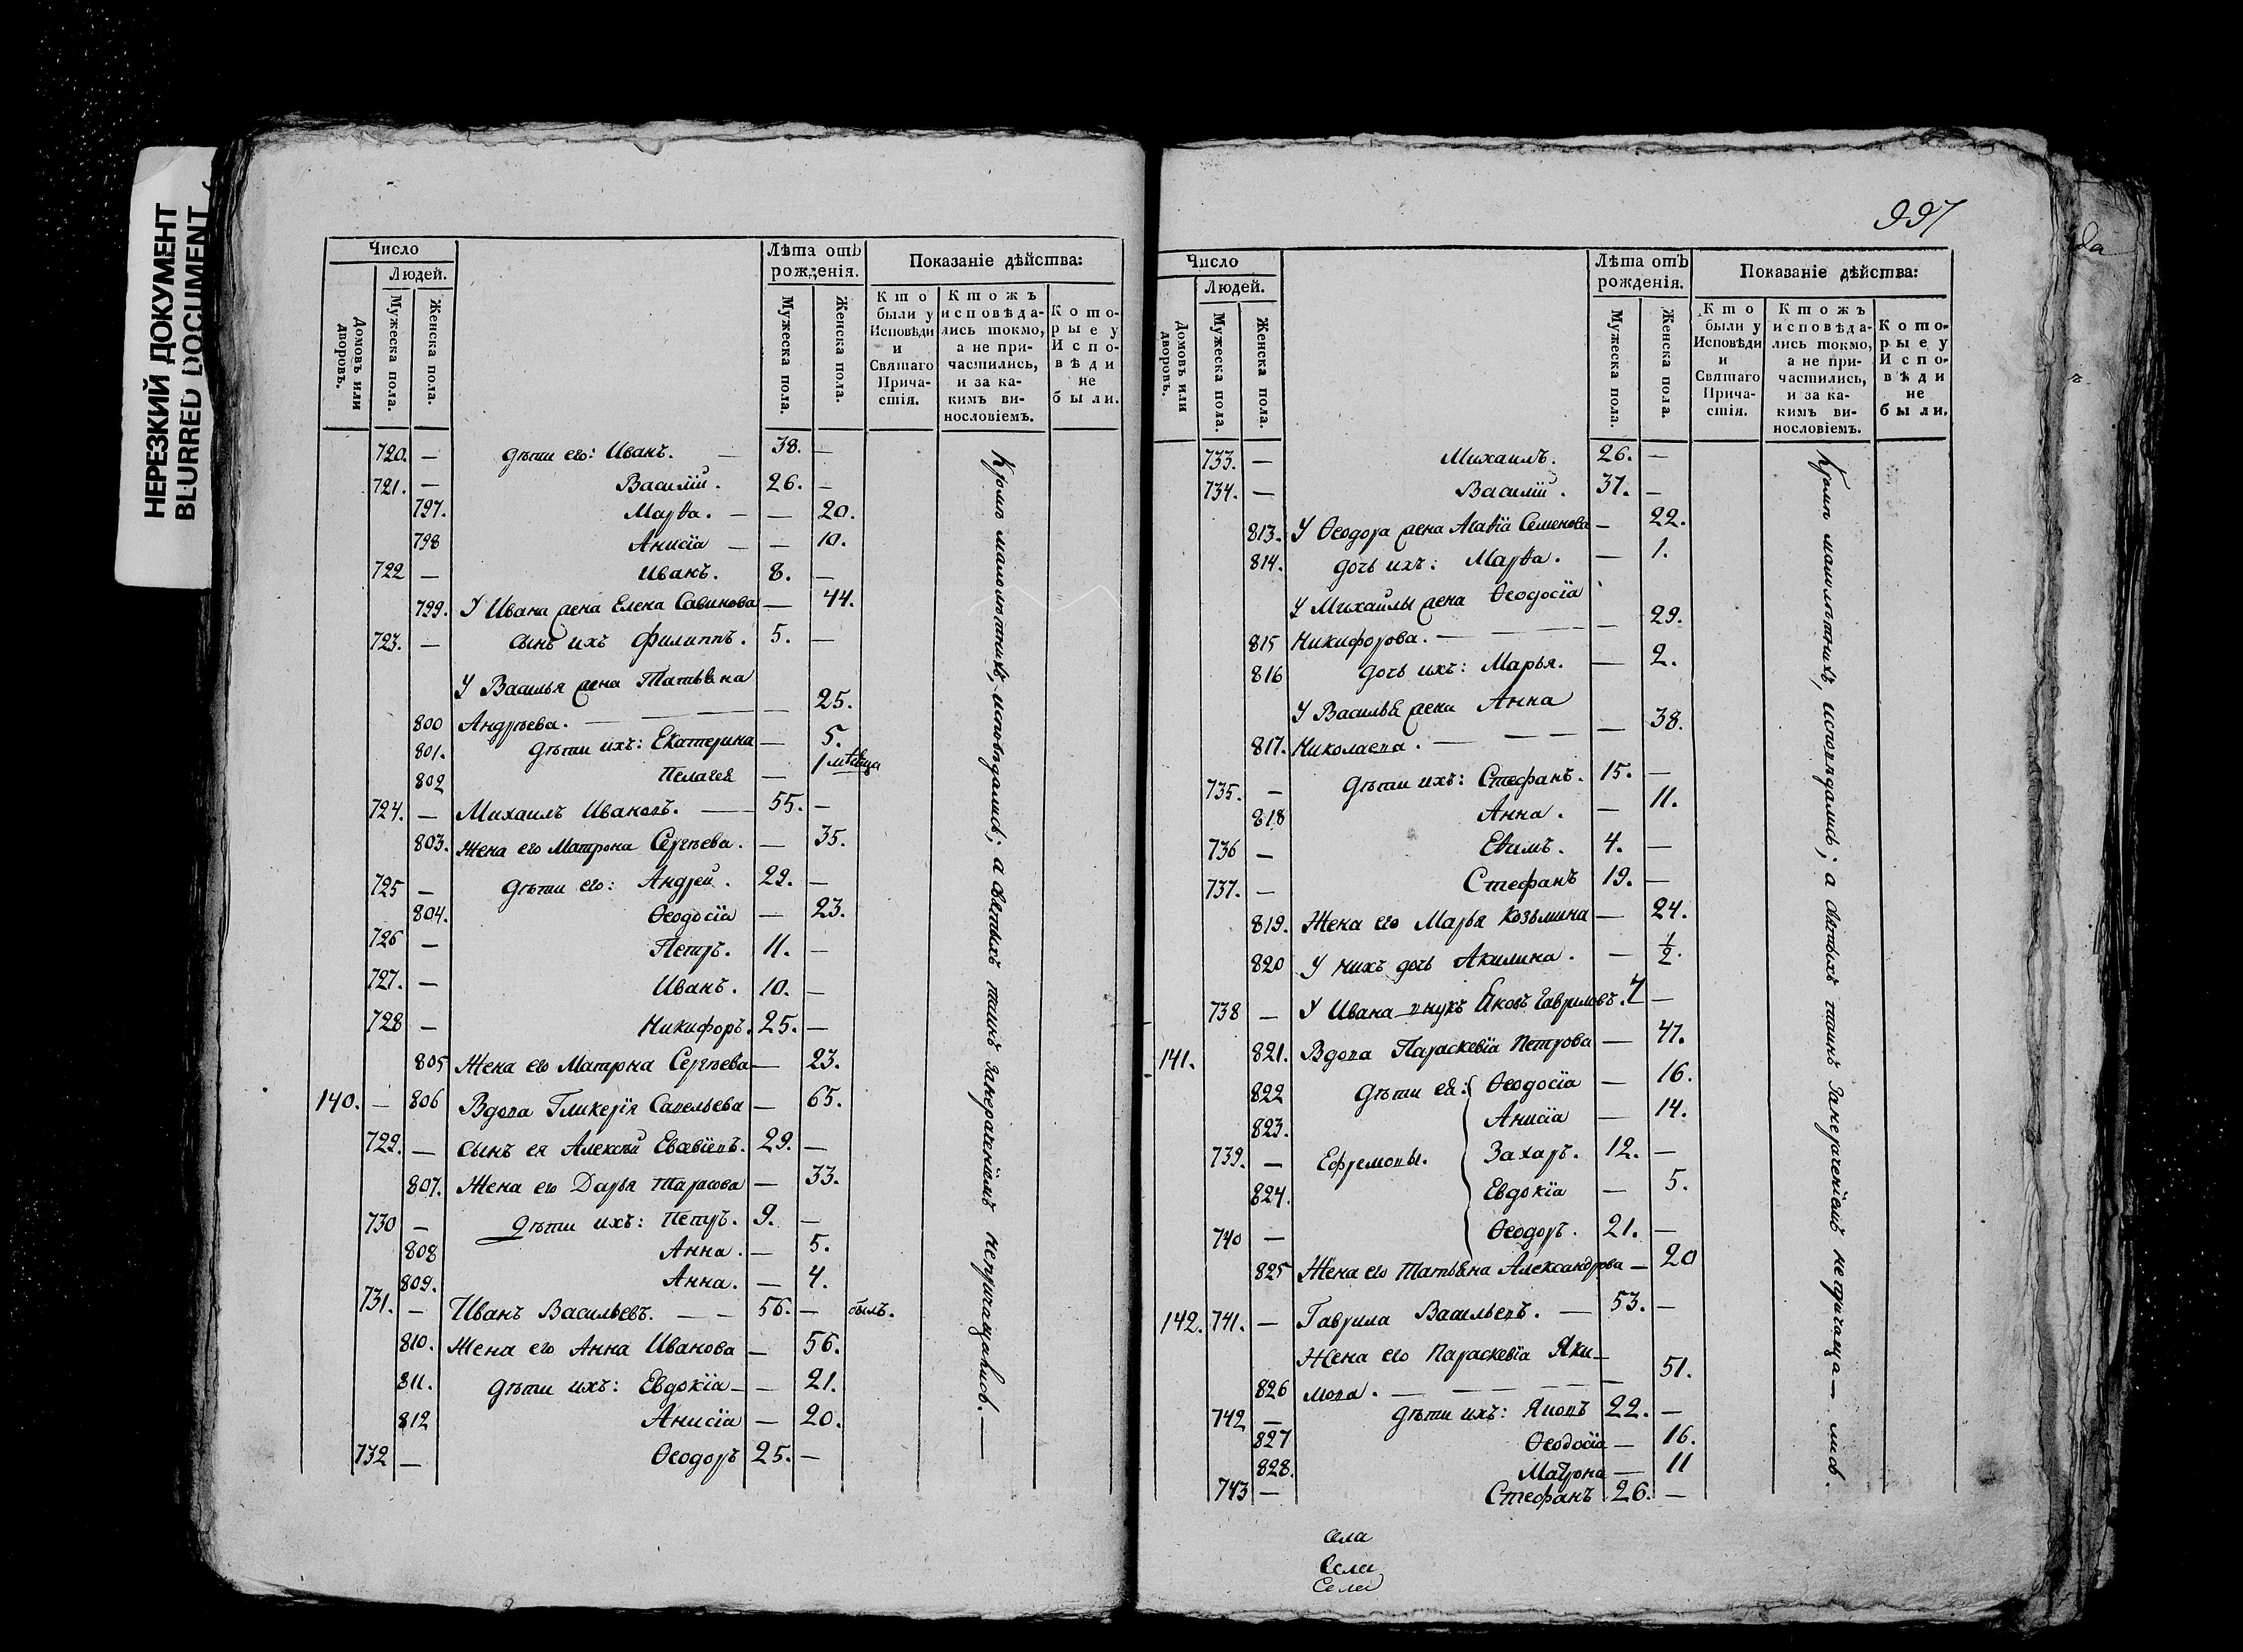 НЕРЕЗКИЙ ДОКУМЕНТ
BLURRED DOCUMENT
Число
Людей.
Домовъ или дворовъ.
Мужеска пола.
Женска пола.
Лѣта отъ рожденія.
Мужеска пола.
Женска пола.
Показаніе дѣйства:
Кто были у Исповѣди и Святаго Причастія.
Ктожъ исповѣдались токмо, а не причастились, и за какимъ винословіемъ.
Которые у Исповѣди не были.
720. — дѣти его: Иванъ. — 38. —
721. — Василій. 26. —
797. Марѳа. — — 20.
798 Анисія — — 10.
722 — Иванъ. 8. —
799. У Ивана жена Елена Савинова — 44.
723. — сынъ ихъ Филиппъ. 5. —
У Василья жена Татьяна
800 Андрѣева. — — — — 25.
801. дѣти ихъ: Екатерина — 5.
802 Пелагея — 1 мѣсяца
724. — Михаилъ Ивановъ. — 55. —
803. Жена его Матрона Сергѣева. — 35.
725 — дѣти его: Андрей. 29. —
804. Ѳеодосія — 23.
726 — Петръ. 11. —
727. — Иванъ. 10. —
728 — Никифоръ. 25. —
805 Жена его Матрона Сергѣева — 23.
140. — 806 Вдова Гликерія Савельева — 65.
729. — сынъ ея Алексѣй 29. —
807. Жена его Дарья Тарасова — 33.
730 — дѣти ихъ: Петръ. 9. —
808 Анна. — 5.
809. Анна. — 4.
731. — Иванъ Васильевъ. — — 56. — былъ.
810. Жена его Анна Иванова — 56.
811. дѣти ихъ: Евдокія — — 21.
812 Анисія — 20.
732 — Ѳеодоръ 25. —
Кромѣ малолѣтнихъ, исповѣдались; а святыхъ таинъ занераченіемъ непричащались. —
997
Число
Людей.
Домовъ или дворовъ.
Мужеска пола.
Женска пола.
Лѣта отъ рожденія.
Мужеска пола.
Женска пола.
Показаніе дѣйства:
Кто были у Исповѣди и Святаго Причастія.
Ктожъ исповѣдались токмо, а не причастились, и за какимъ винословіемъ.
Которые у Исповѣди не были.
733. — Михаилъ. 26. —
734. — Василій. 37. —
813. У Ѳеодора жена Агаѳія Семенова — 22.
814. дочь ихъ: Марѳа. — 1.
У Михайлы жена Ѳеодосія
815 Никифорова. — — — — 29.
816 дочь ихъ: Марья. — 2.
У Василья жена Анна
817. Николаева. — — — — 38.
735. — дѣти ихъ: Стефанъ. 15. —
818 Анна. — 11.
736 — Евѳимъ. 4. —
737. — Стефанъ 19. —
819. Жена его Марья Козьмина — 24.
820 У нихъ дочь Акилина. — 1/2.
738 — У Ивана внукъ Яковъ Гавриловъ. 7 —
141. 821. Вдова Параскевія Петрова — 47.
822 дѣти ея: Ѳеодосія — 16.
823. Анисія — 14.
739. — Ефремовы. Захаръ. 12. —
824. Евдокія — 5.
740 — Ѳеодоръ. 21. —
825 Жена его Татьяна Александрова — 20
142. 741. — Гаврила Васильевъ. — 53. —
Жена его Параскевія Яки-
826 мова. — — — — — 51.
742 — дѣти ихъ: Яковъ 22. —
827 Ѳеодосія — 16.
828. Матрона — 11
743 — Стефанъ 26. —
Кромѣ малолѣтнихъ, исповѣдались; а святыхъ таинъ занераченіемъ непричаща— лись.
села
Если
Села